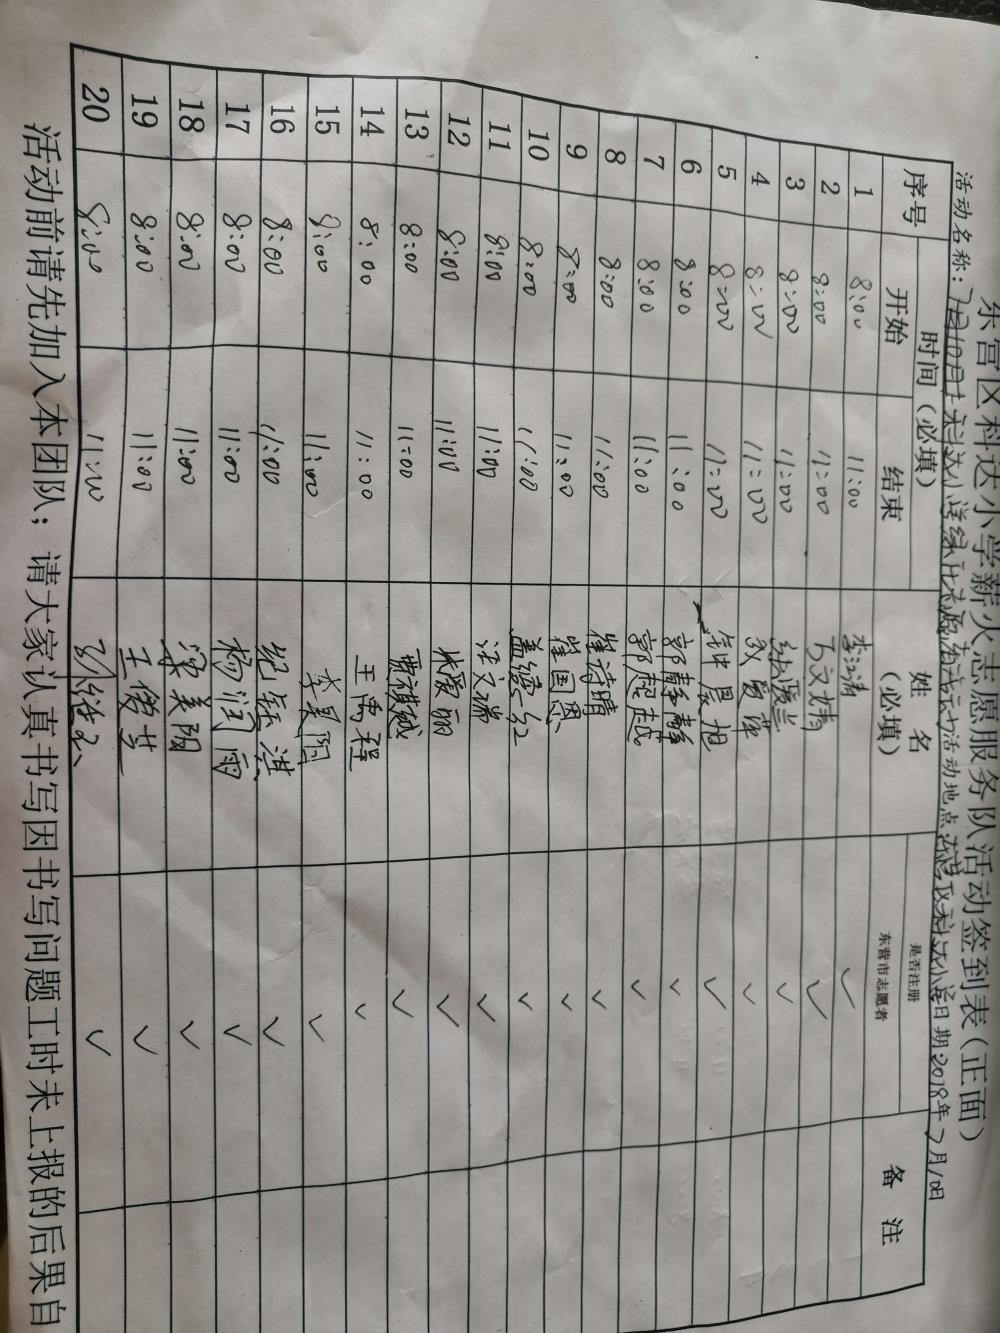 东营区科达小学薪火志愿服务队活动签到表（正面）
活动名称：7月10日 科达小学 活动 活动地点：东营区科达小学 日期：2018年7月10日
序号 时间（必填） 姓名（必填） 是否注册东营市志愿者 备注
开始 结束
1 8:00 11:00 李沄清 ✓
2 8:00 11:00 马文婧 ✓
3 8:00 11:00 ✓
4 8:00 11:00 ✓
5 8:00 11:00 钟晨旭 ✓
6 8:00 11:00 郭静静 ✓
7 8:00 11:00 郭超越 ✓
8 8:00 11:00 崔诗晴 ✓
9 8:00 11:00 崔国恩 ✓
10 8:00 11:00 盖德红 ✓
11 8:00 11:00 ✓
12 8:00 11:00 ✓
13 8:00 11:00 ✓
14 8:00 11:00 王禹程 ✓
15 8:00 11:00 李昊阳 ✓
16 8:00 11:00 纪钰淇 ✓
17 8:00 11:00 杨润雨 ✓
18 8:00 11:00 梁美阳 ✓
19 8:00 11:00 王俊芝 ✓
20 8:00 11:00 ✓
活动前请先加入本团队；请大家认真书写因书写问题工时未上报的后果自